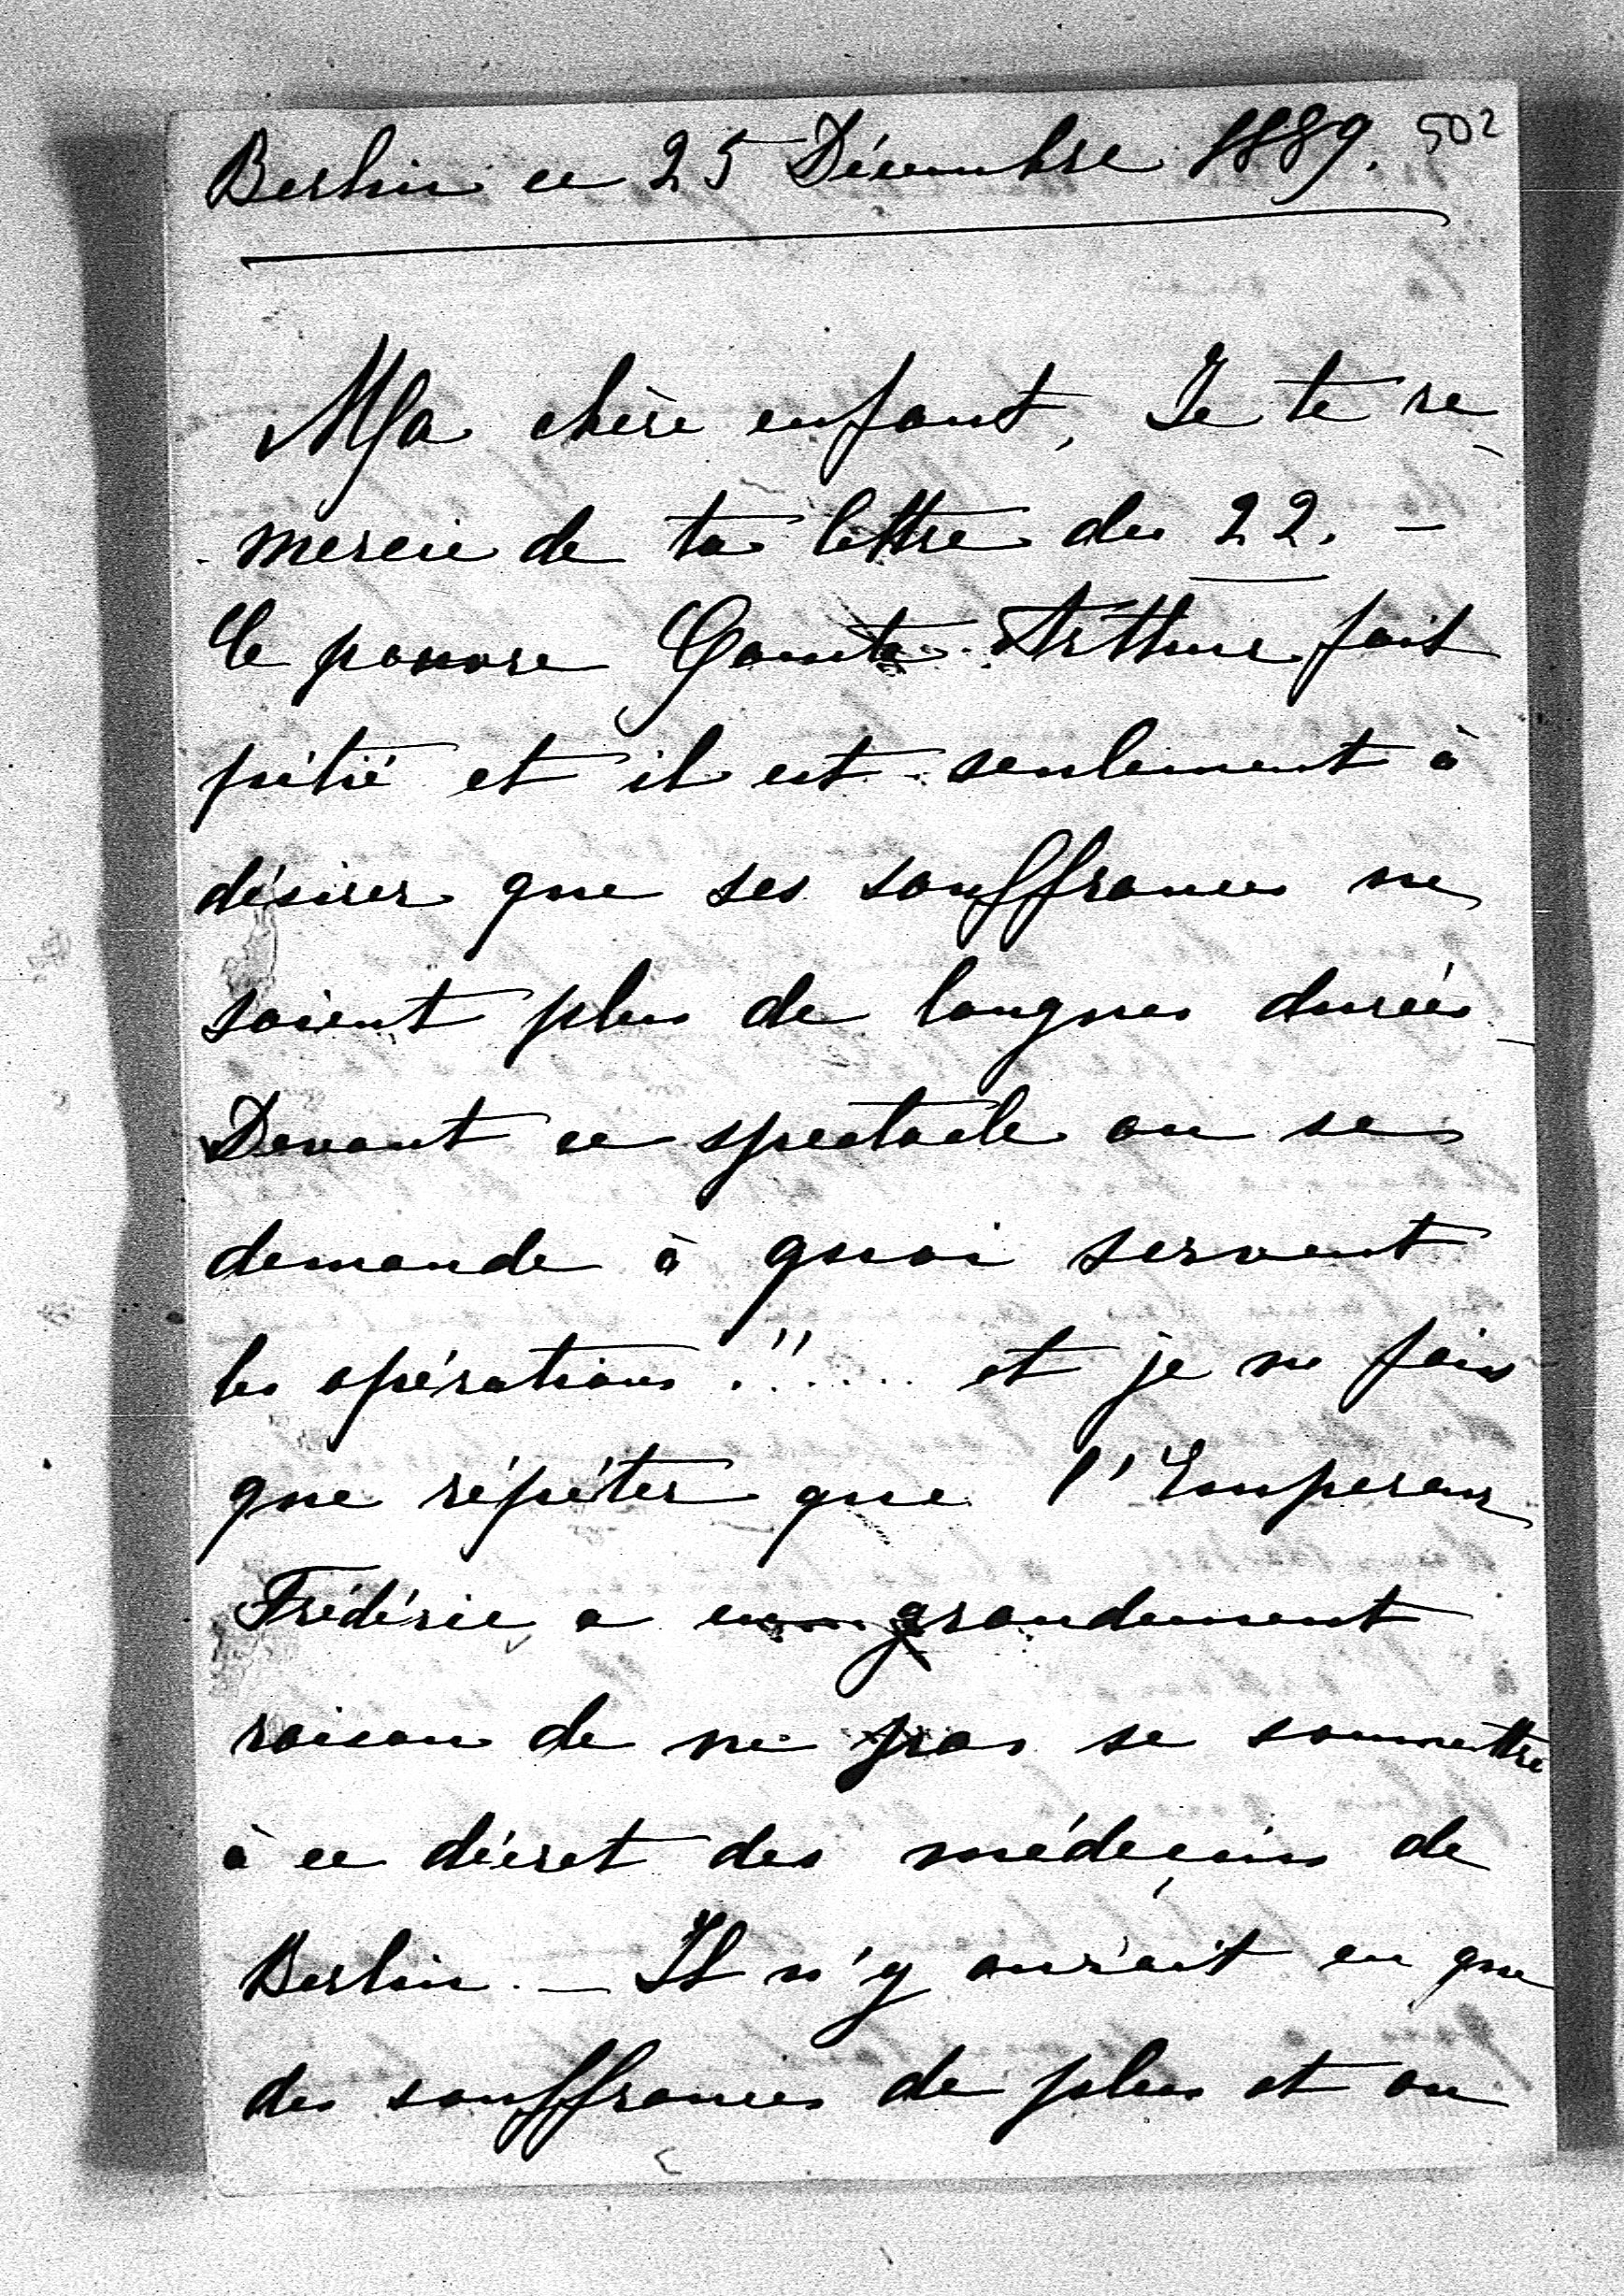 Berlin ce 25 Décembre 1889. 502
Ma chère enfant, Je te re-
mercie de ta lettre du 22. -
Ce pauvre Comte Arthur fait
pitié et il est seulement à
désirer que ses souffrances ne
soient plus de longues durées
Devant ce spectacle on se
demande à quoi servent
les opérations ...... et je ne fais
que répéter que l'Empereur
Frédéric a eu grandement
raison de ne pas se soumettre
à ce décret des médeçins de
Berlin. - Il n'y aurait eu que
des souffrances de plus et on